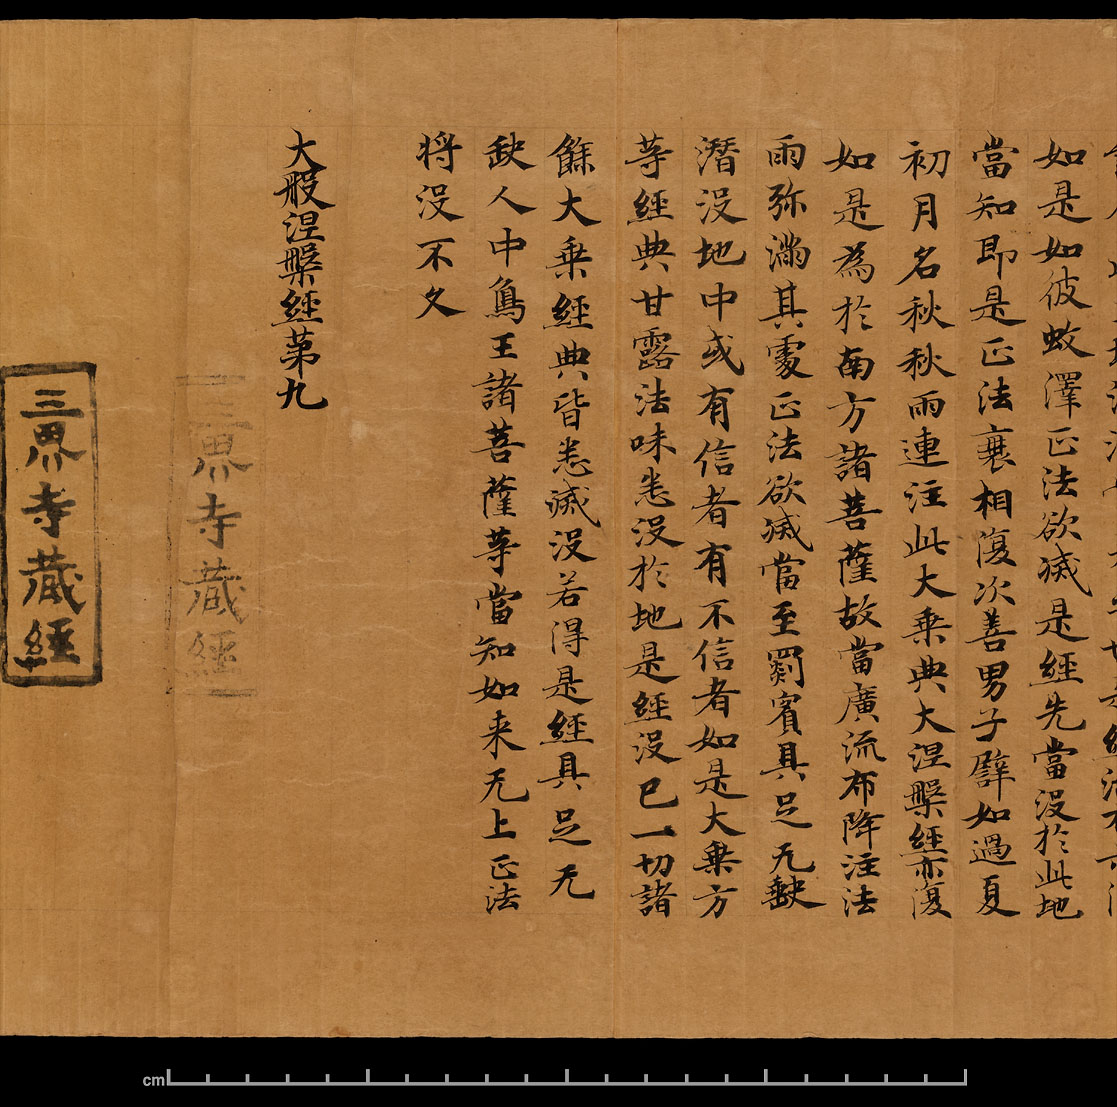 如是如彼蚊澤正法欲滅是經先當沒於此地
當知即是正法衰相復次善男子譬如過夏
初月名秋秋雨連注此大乗典大涅槃經亦復
如是為於南方諸菩薩故當廣流布降注法
雨弥滿其處正法欲滅當至罽賓具足无缺
潜沒地中或有信者有不信者如是大乗方
等經典甘露法味悉沒於地是經沒已一切諸
餘大乗經典皆悉滅沒若得是經具足无
缺人中象王諸菩薩等當知如来无上正法
将沒不久
大般涅槃經第九
三界寺藏經
三界寺藏經
cm